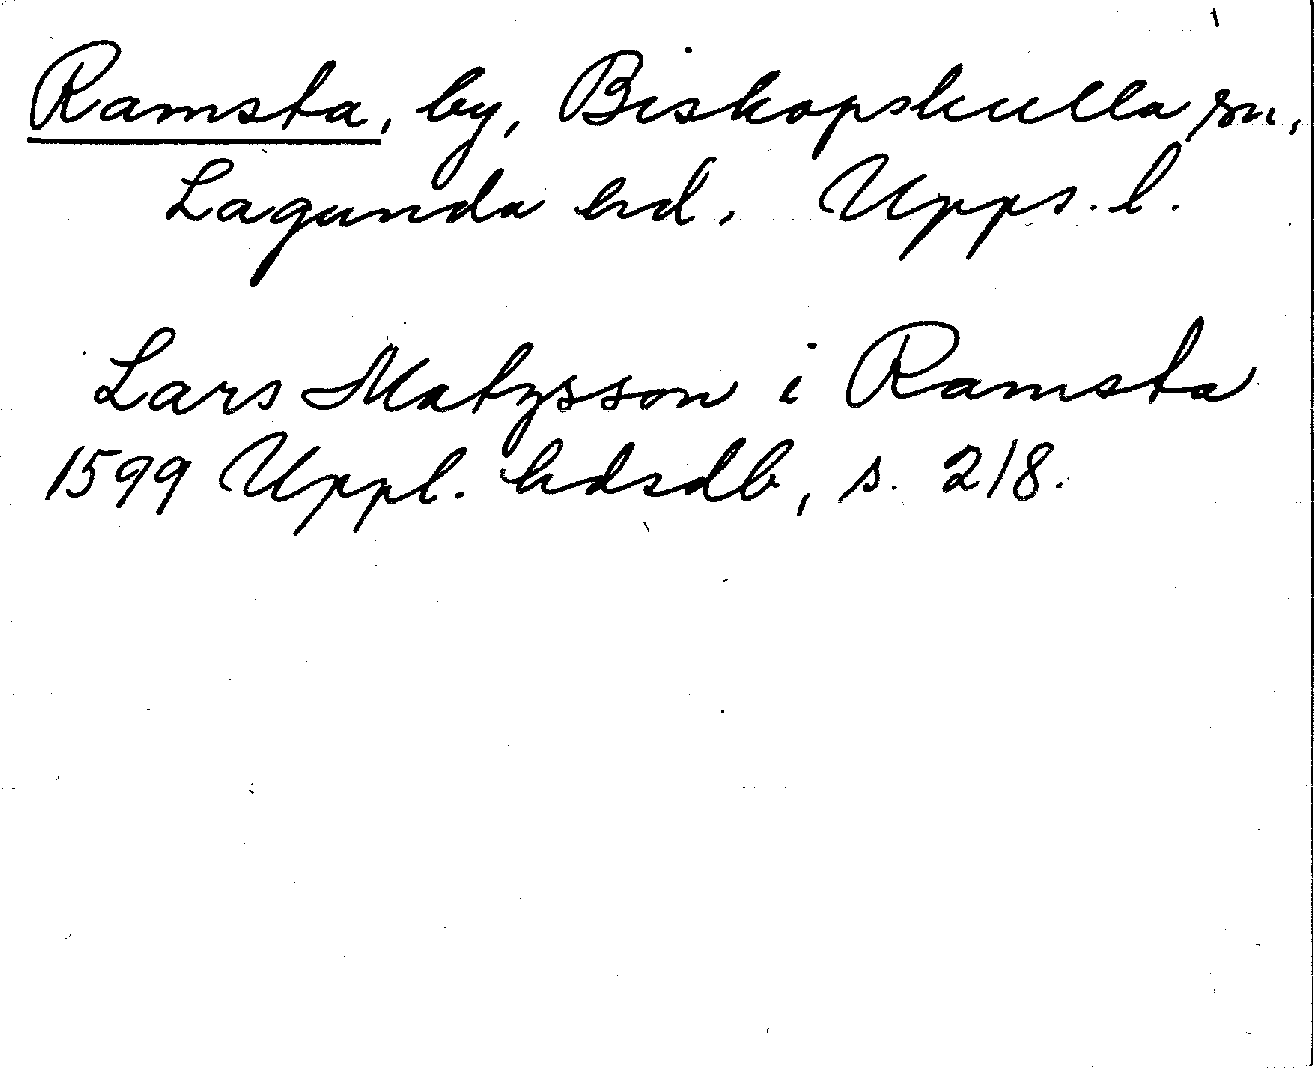 Ramsta, by, Biskopskulla sn,
Lagunda hd. Upps. l.
Lars Matzsson i Ramsta
1599 Uppl. hdsdb, s. 218.